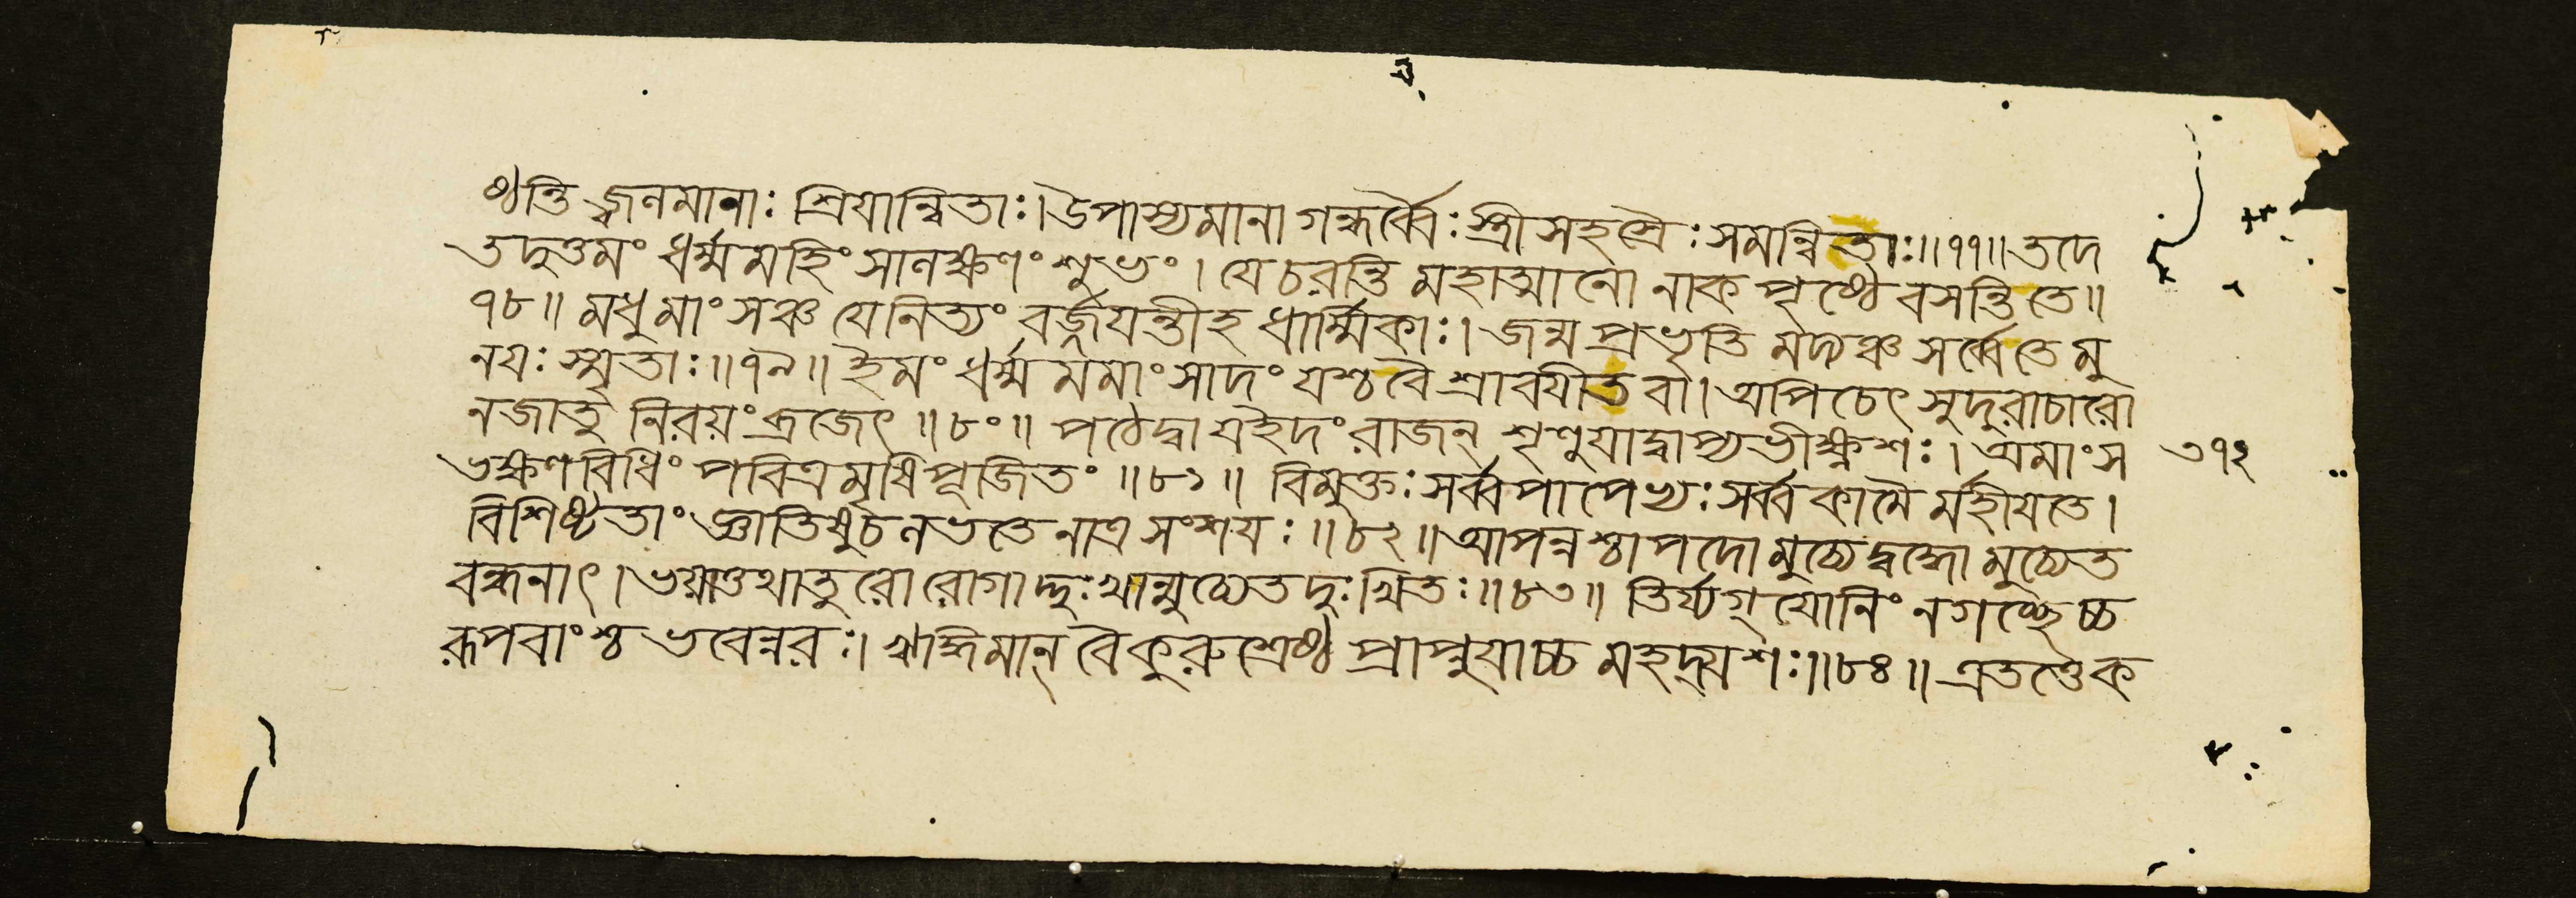 ষ্ঠন্তি জ্বলমানাঃ শ্রিয়ান্বিতাঃ। উপাস্যমানা গন্ধর্ব্বৈঃ স্ত্রীসহস্রৈঃ সমন্বিতাঃ॥৭৭॥ তদে
তদুত্তমং ধর্ম্মমহিংসালক্ষণং শুভং। যে চরন্তি মহাত্মানো নাকপৃষ্ঠে বসন্তি তে॥
৭৮॥ মধুমাংসঞ্চ যে নিত্যং বর্জ্জয়ন্তীহ ধার্ম্মিকাঃ। জন্মপ্রভৃতি মদ্যঞ্চ সর্ব্বে তে মু
নয়ঃ স্মৃতাঃ॥৭৯॥ ইমং ধর্ম্মমমাংসাদং যশ্চরে শ্রাবয়ীত বা। অপি চেৎ সুদুরাচারো
ন জাতু নিরয়ং ব্রজেৎ॥৮০॥ পঠেদ্বা য ইদং রাজন্ শৃণুয়াদ্বাপ্যভীক্ষ্ণশঃ। অমাংস ৩৭২
ভক্ষণবিধিং পবিত্রমৃষিপূজিতং॥৮১॥ বিমুক্তঃ সর্ব্বপাপেভ্যঃ সর্ব্বকামৈর্মহীয়তে।
বিশিষ্টতাং জ্ঞাতিষু চ লভতে নাত্র সংশয়ঃ॥৮২॥ আপন্নশ্চাপদো মুচ্যেদ্বদ্ধো মুচ্যেত
বন্ধনাৎ। ভয়াত্তথাতুরো রোগাদ্দুঃখান্মুচ্যেত দুঃখিতঃ॥৮৩॥ তির্য্যগ্যোনিং ন গচ্ছেচ্চ
রূপবাংশ্চ ভবেন্নরঃ। ঋদ্ধিমান্ বৈ কুরুশ্রেষ্ঠ প্রাপ্নুয়াচ্চ মহদ্যশঃ॥৮৪॥ এতত্তে ক